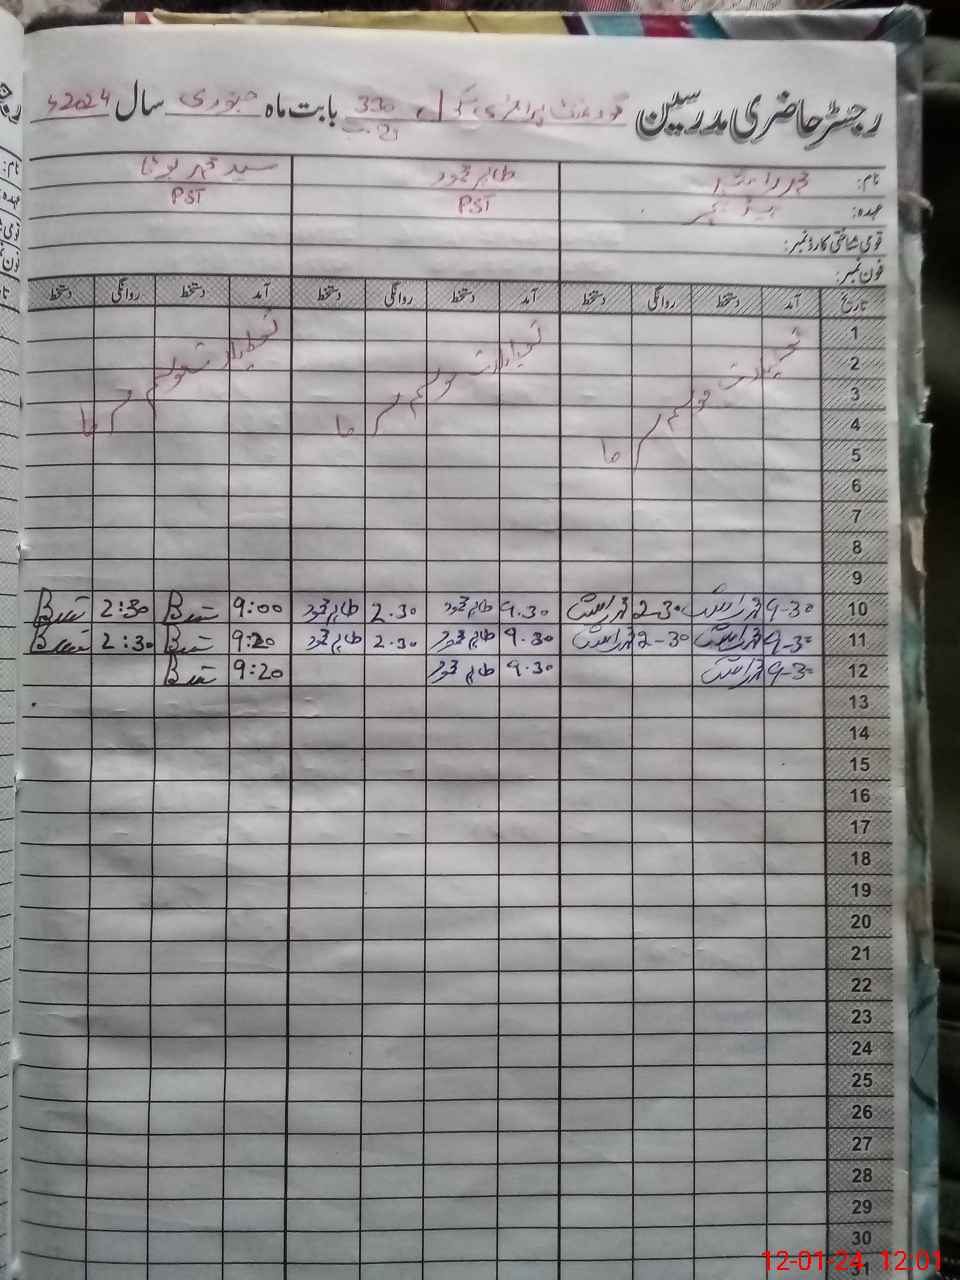 رجسٹر حاضری مدرسین گورنمنٹ پرائمری سکول 330 بابت ماہ جنوری سال 2024ء
نام: طاہر محمود سید
عہدہ: ہیڈ ٹیچر PST PST
قومی شناختی کارڈ نمبر:
فون نمبر:
تاریخ آمد دستخط روانگی دستخط آمد دستخط روانگی دستخط آمد دستخط روانگی دستخط
1
2 تعطیلات موسم سرما تعطیلات موسم سرما تعطیلات موسم سرما
3
4
5
6
7
8
9
10 9-30 2-30 9.30 طاہر محمود 2.30 طاہر محمود 9:00 2:30
11 9-30 2-30 9.30 طاہر محمود 2.30 طاہر محمود 9:20 2:30
12 9-30 9.30 طاہر محمود 9:20
13
14
15
16
17
18
19
20
21
22
23
24
25
26
27
28
29
30
31
12-01-24 12:01